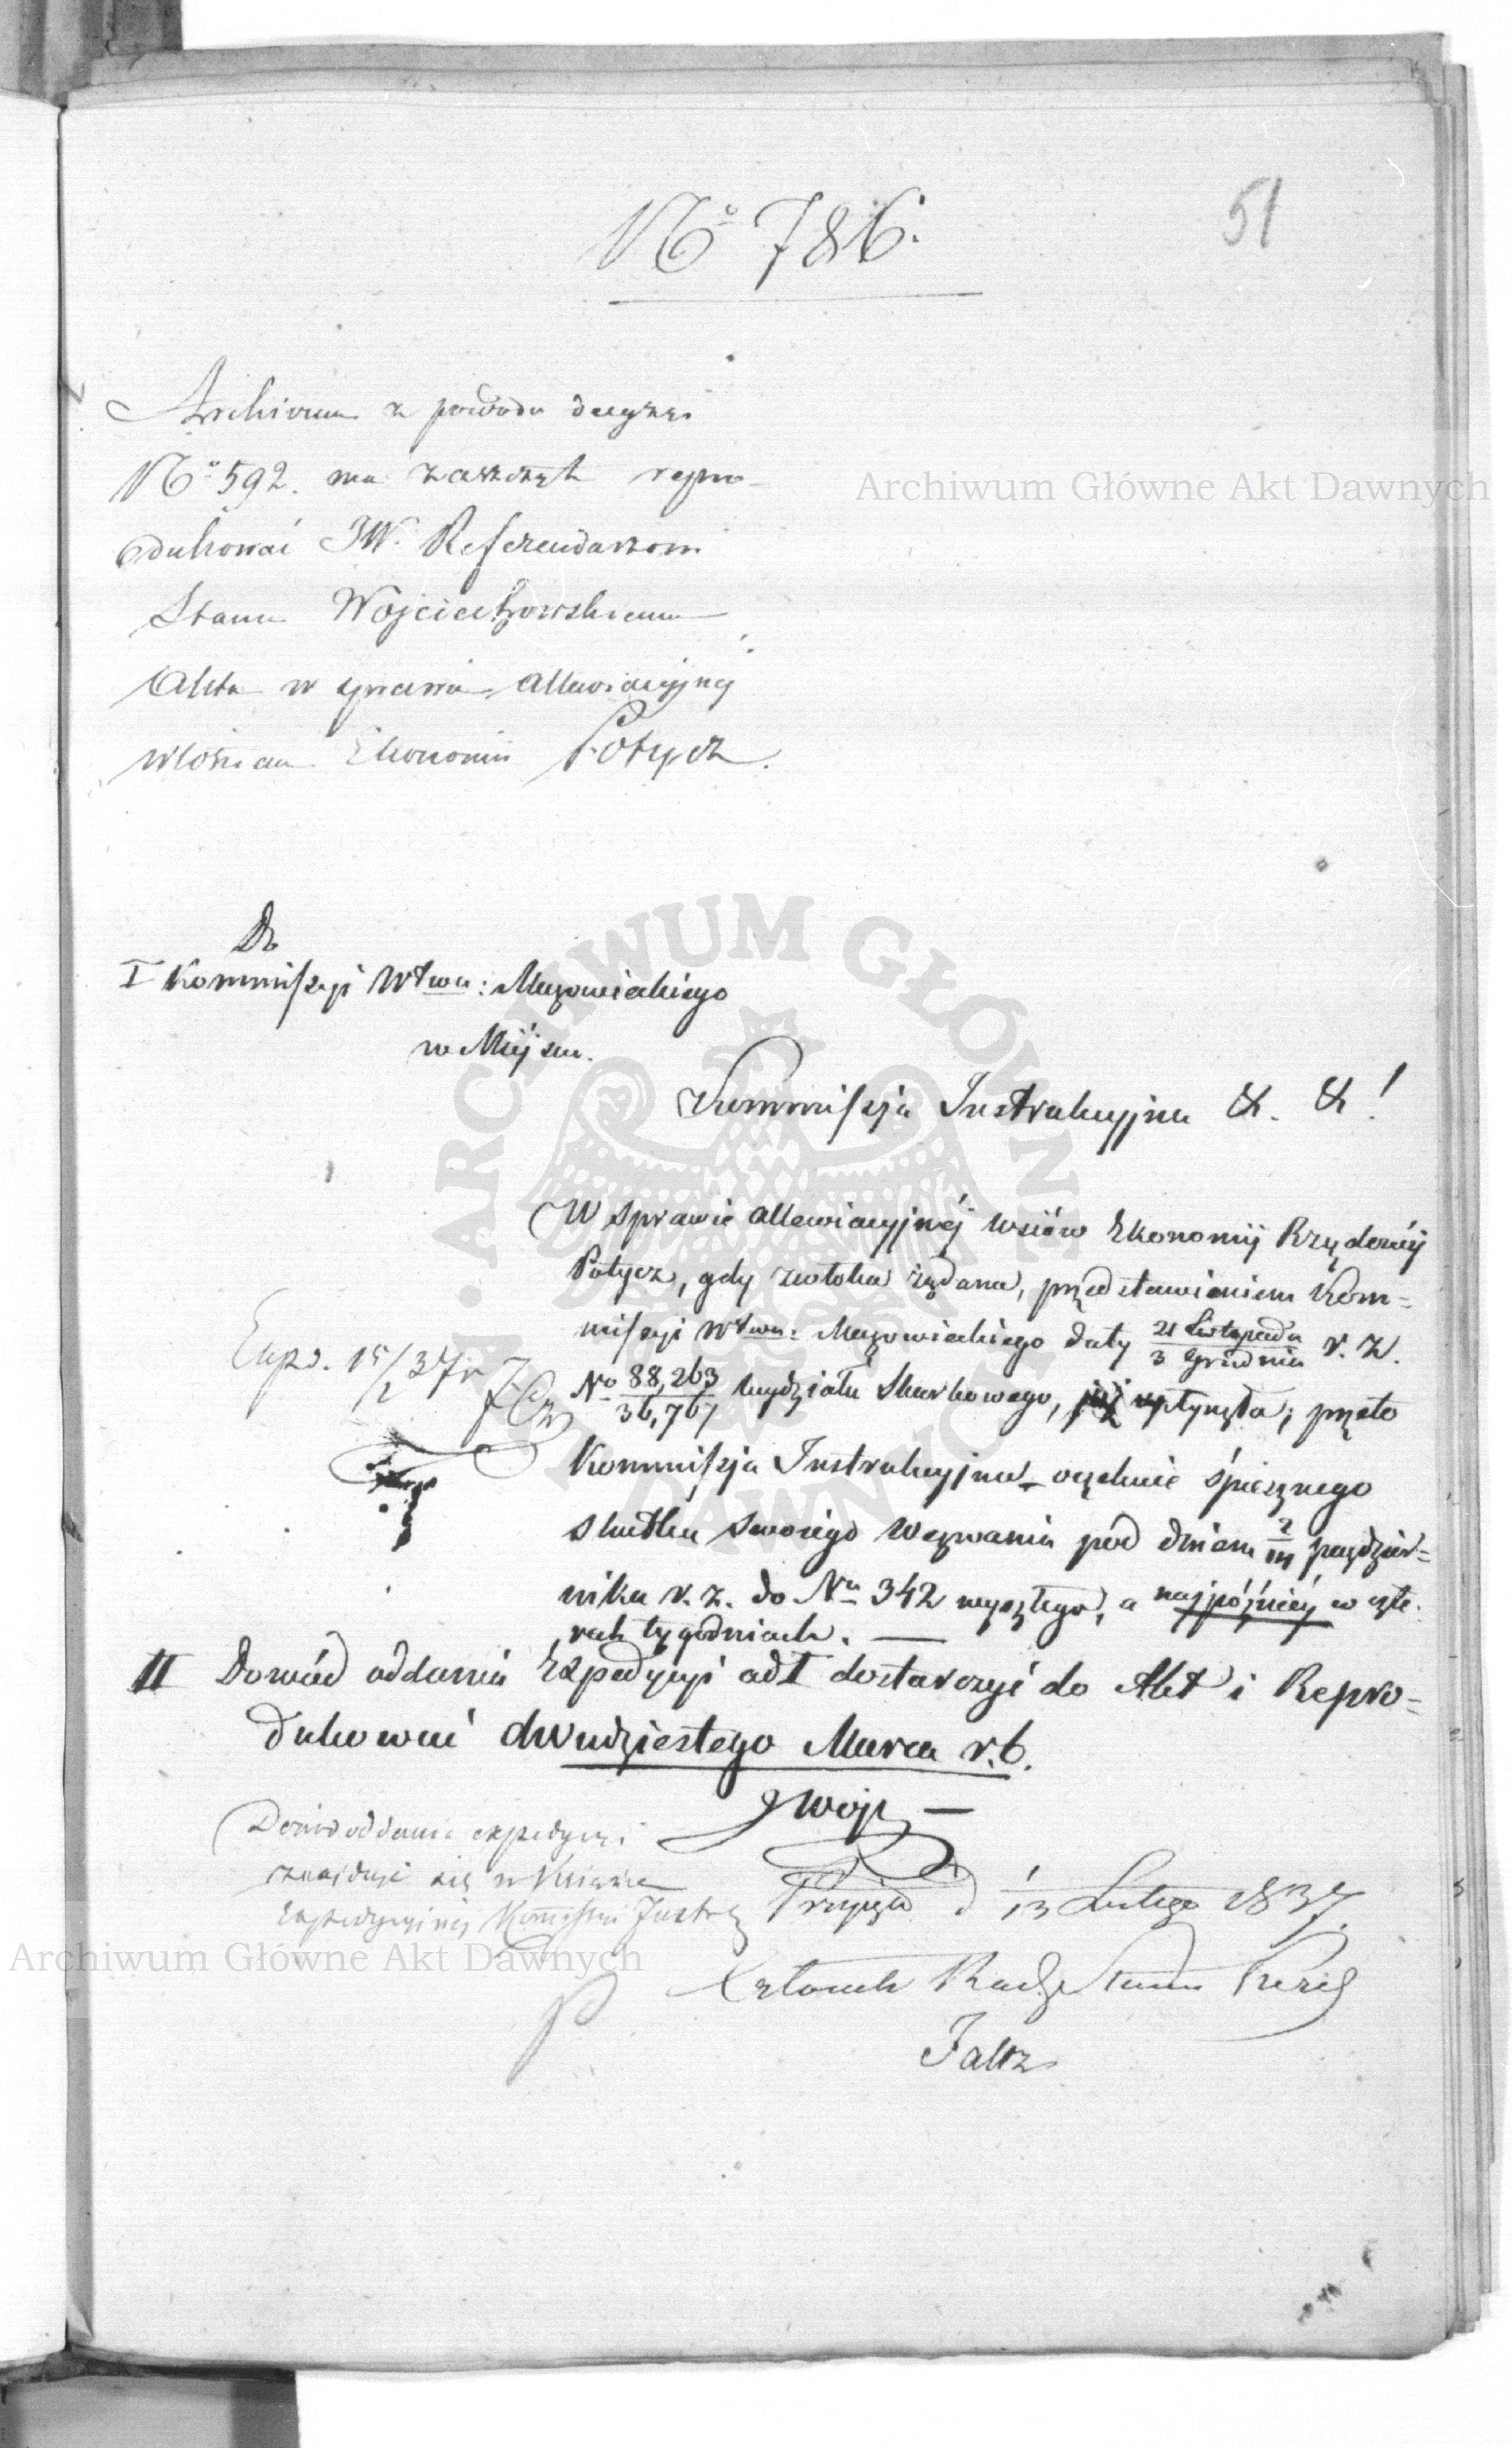 51
No 786.
Archiwum z powodu decyzyi
No 592. ma zaszczyt repro-
dukować JW. Referendarzowi
Stanu Wojciechowskiemu
Akta w sprawie allewiacyjnej
włościan Ekonomii Potycz.
Do
I Kommissyi Wtwa: Mazowieckiego
w Miejscu.
Kommissja Instrukcyjna &. &!
W sprawie allewiacyjnéj wsiów Ekonomij Rządowéj
Potycz, gdy zwłoka żądana, przedstawieniem Kom=
missyi Wtwa: Mazowieckiego daty 21 Listopada / 3 Grudnia r. z.
No 88,263 / 36,767 Wydziału Skarbowego, już upłynęła; przeto
Kommissja Instrukcyjna oczekuie śpiesznego
skutku swoiego wezwania pod dniem paździer=
nika r. z. do Nu 342 wyszłego, a najpóźniéj w czte-
rech tygodniach. —
Exped. 15/2 37 r
II Dowód oddania Expedycyi ad I dostarczyć do Akt i Repro=
dukować dwudziestego Marca r. b.
JWojc —
Dowód oddania expedycyi
znajduje się w Książce
Expedycyjnej Kommissyi Instr
Przyjęto d 1/13 Lutego 1837.
Członek Rady Stanu Prezes
Faltz
Archiwum Główne Akt Dawnych
ARCHIWUM GŁÓWNE AKT DAWNYCH
Archiwum Główne Akt Dawnych